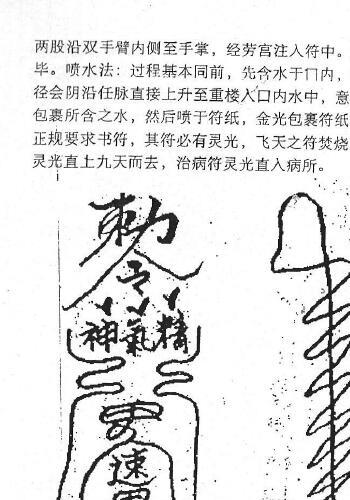 两股沿双手臂内侧至手掌，经劳宫注入符中。
毕。喷水法：过程基本同前，先含水于口内，
径会阴沿任脉直接上升至重楼入口内水中，意
包裹所含之水，然后喷于符纸，金光包裹符纸
正规要求书符，其符必有灵光，飞天之符焚烧
灵光直上九天而去，治病符灵光直入病所。
敕
令
神氣精
速